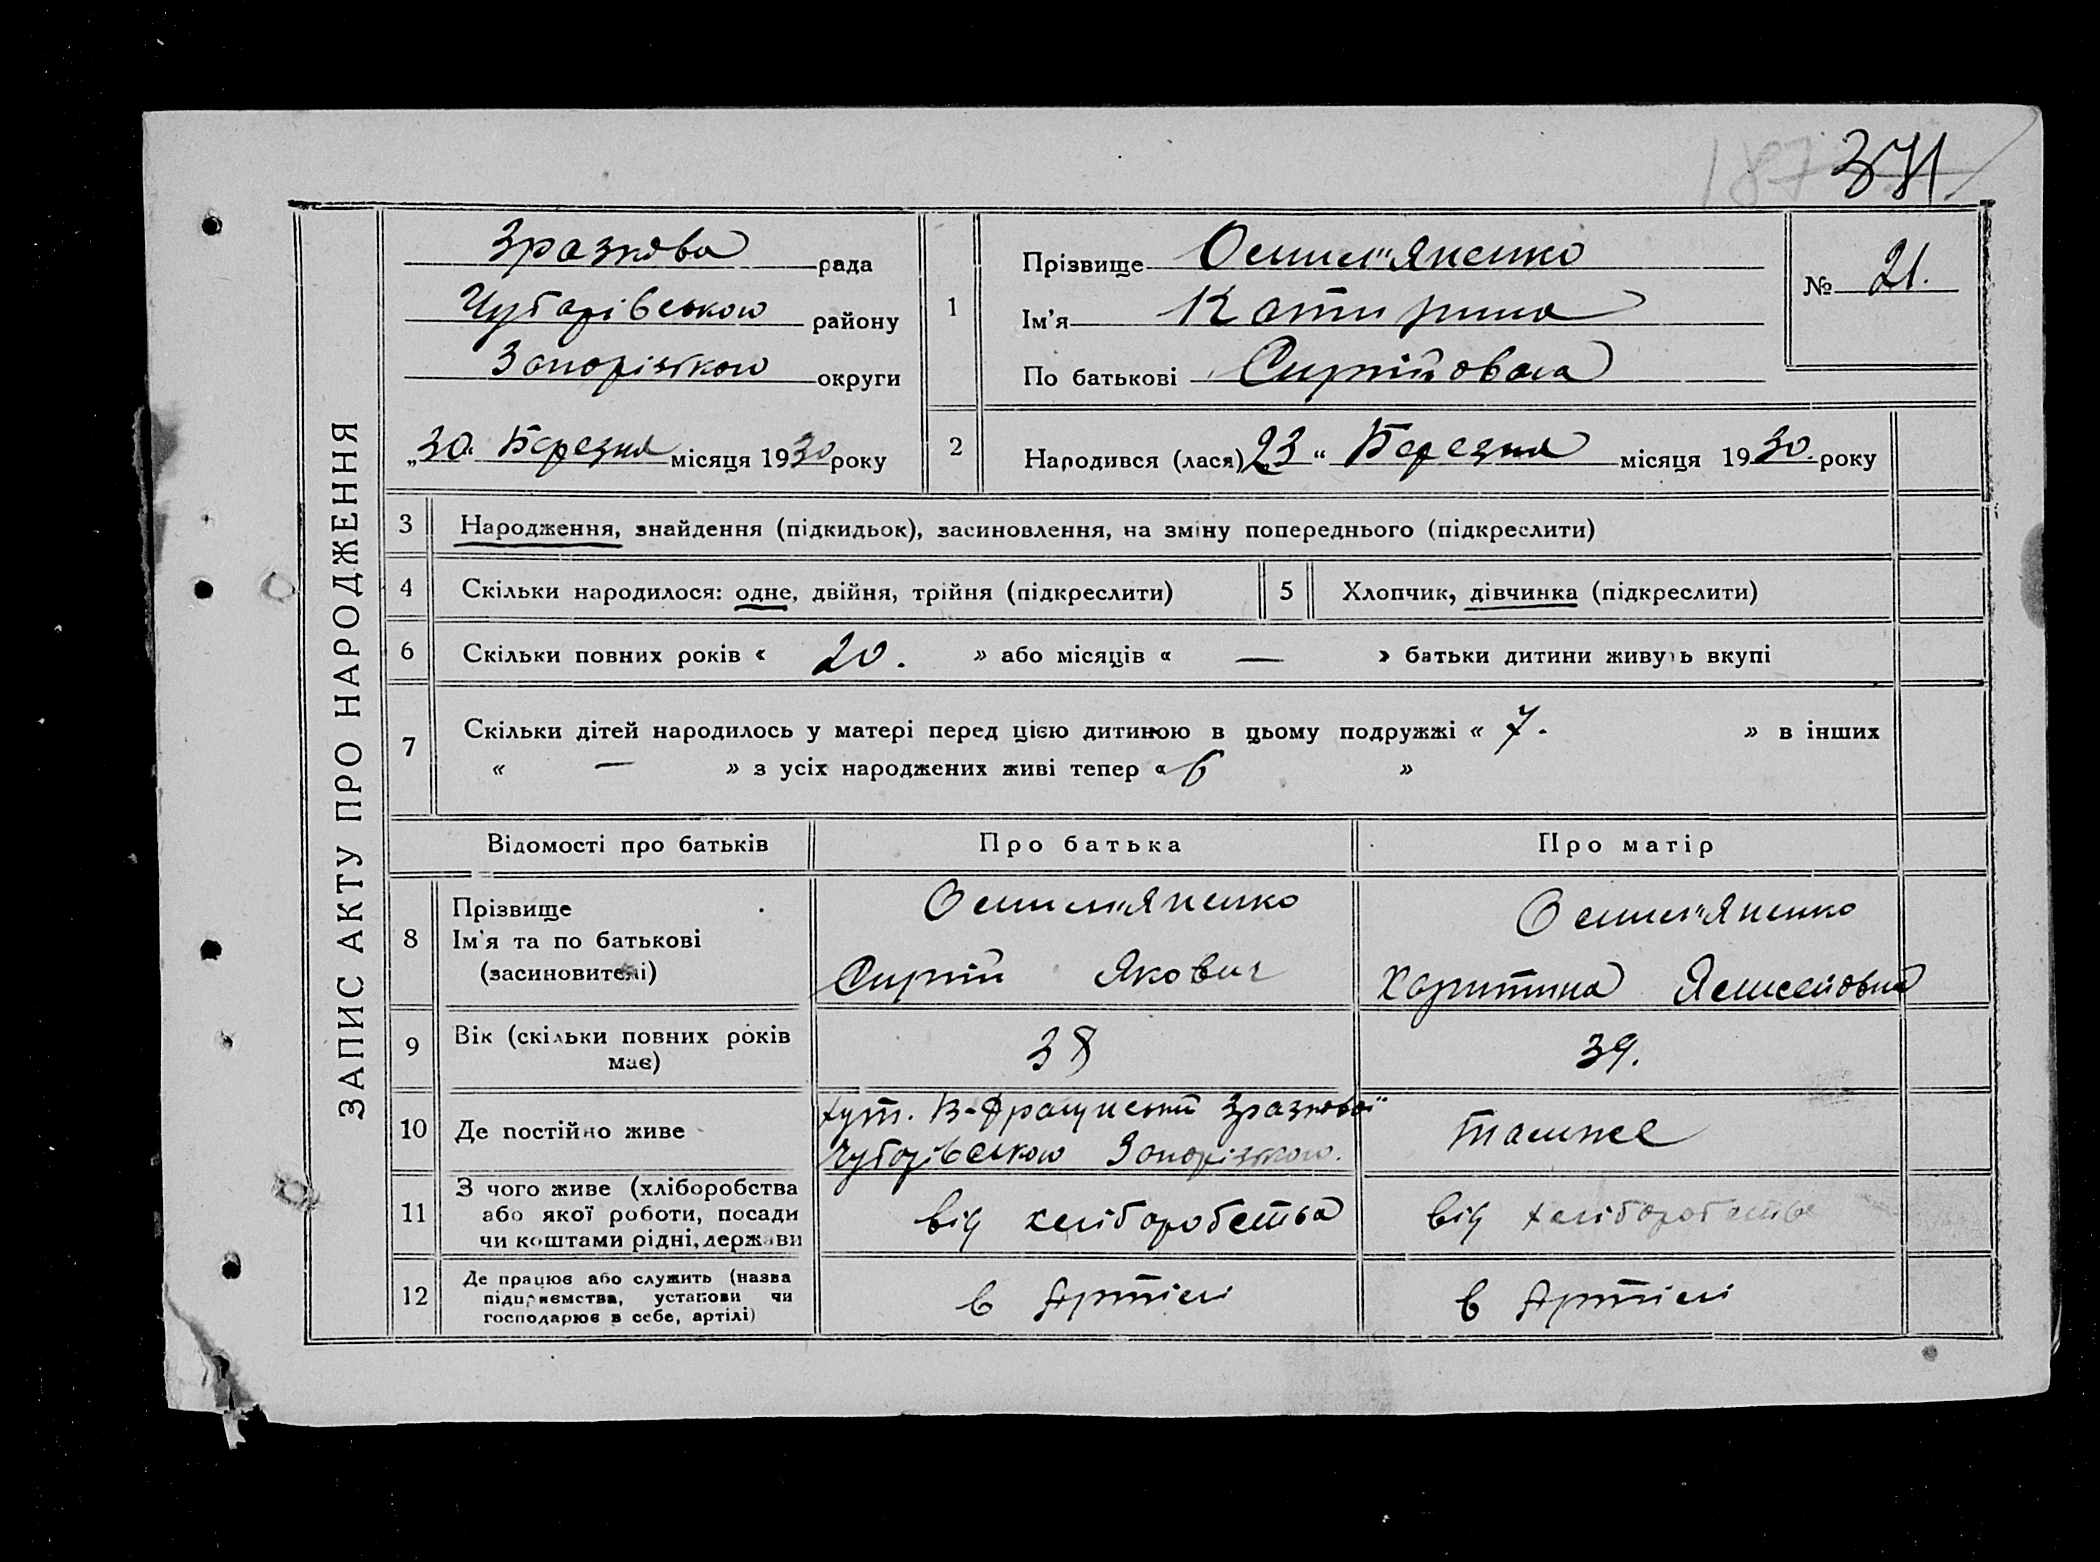 371
ЗАПИС АКТУ ПРО НАРОДЖЕННЯ
Зразкова рада
Чубарівського району
Запоріжского округи
„30“ Березня місяця 1930 року
1
Прізвище Омел"яненко
Ім'я Катирина
По батькові Сиргійована
№ 21.
2 Народився (лася) „23“ Березня місяця 1930 року
3 Народження, знайдення (підкидьок), засиновлення, на зміну попереднього (підкреслити)
4 Скільки народилося: одне, двійня, трійня (підкреслити) 5 Хлопчик, дівчинка (підкреслити)
6 Скільки повних років « 20. » або місяців « — » батьки дитини живуть вкупі
7 Скільки дітей народилось у матері перед цією дитиною в цьому подружжі « 7. » в інших
« — » з усіх народжених живі тепер « 6 »
Відомості про батьків Про батька Про матір
8 Прізвище
Ім'я та по батькові
(засиновителі)
Омельяненко
Сиргій Якович
Омел"яненко
Харитина
9 Вік (скільки повних років
має) 38 39.
10 Де постійно живе
хут. Зразкової
Чубарівського Запорізького.
также
11 З чого живе (хліборобства
або якої роботи, посади
чи коштами рідні, держави
від хліборобства від хліборобства
12 Де працює або служить (назва
підприємства, установи чи
господарює в себе, артілі)
в Артілі в Артілі